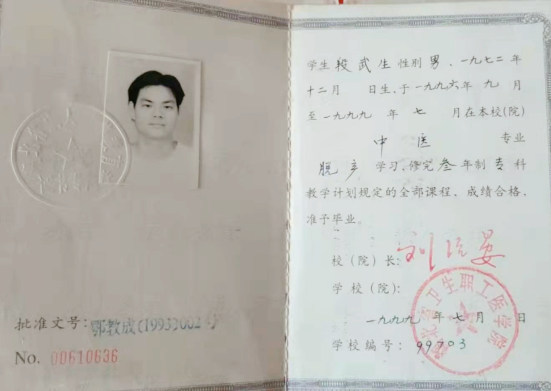 批准文号:鄂教成(1993)002
No. 00610636
学生 段武生 性别 男、一九七二年
十二月 日生,于一九九六年九月
至一九九九年七月在本校(院)
中医 专业
脱产 学习,修完叁年制专科
教学计划规定的全部课程,成绩合格,
准予毕业。
校(院)长:
学校(院):
一九九九年七月 日
学校编号:99703
卫生职工医学院